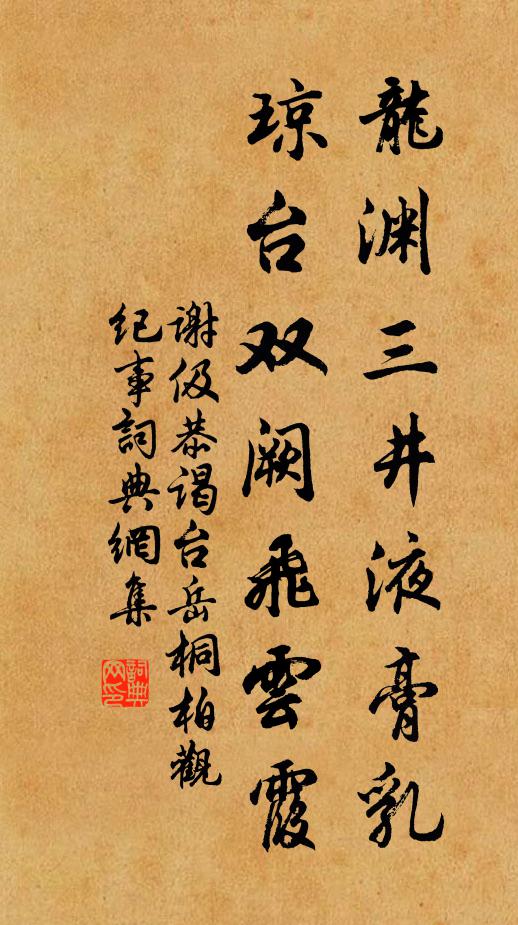 龍渊三井液膏乳
琼台双阙飛雲霞
谢伋恭谒台岳桐柏觀
纪事詞典網集
詞典网印